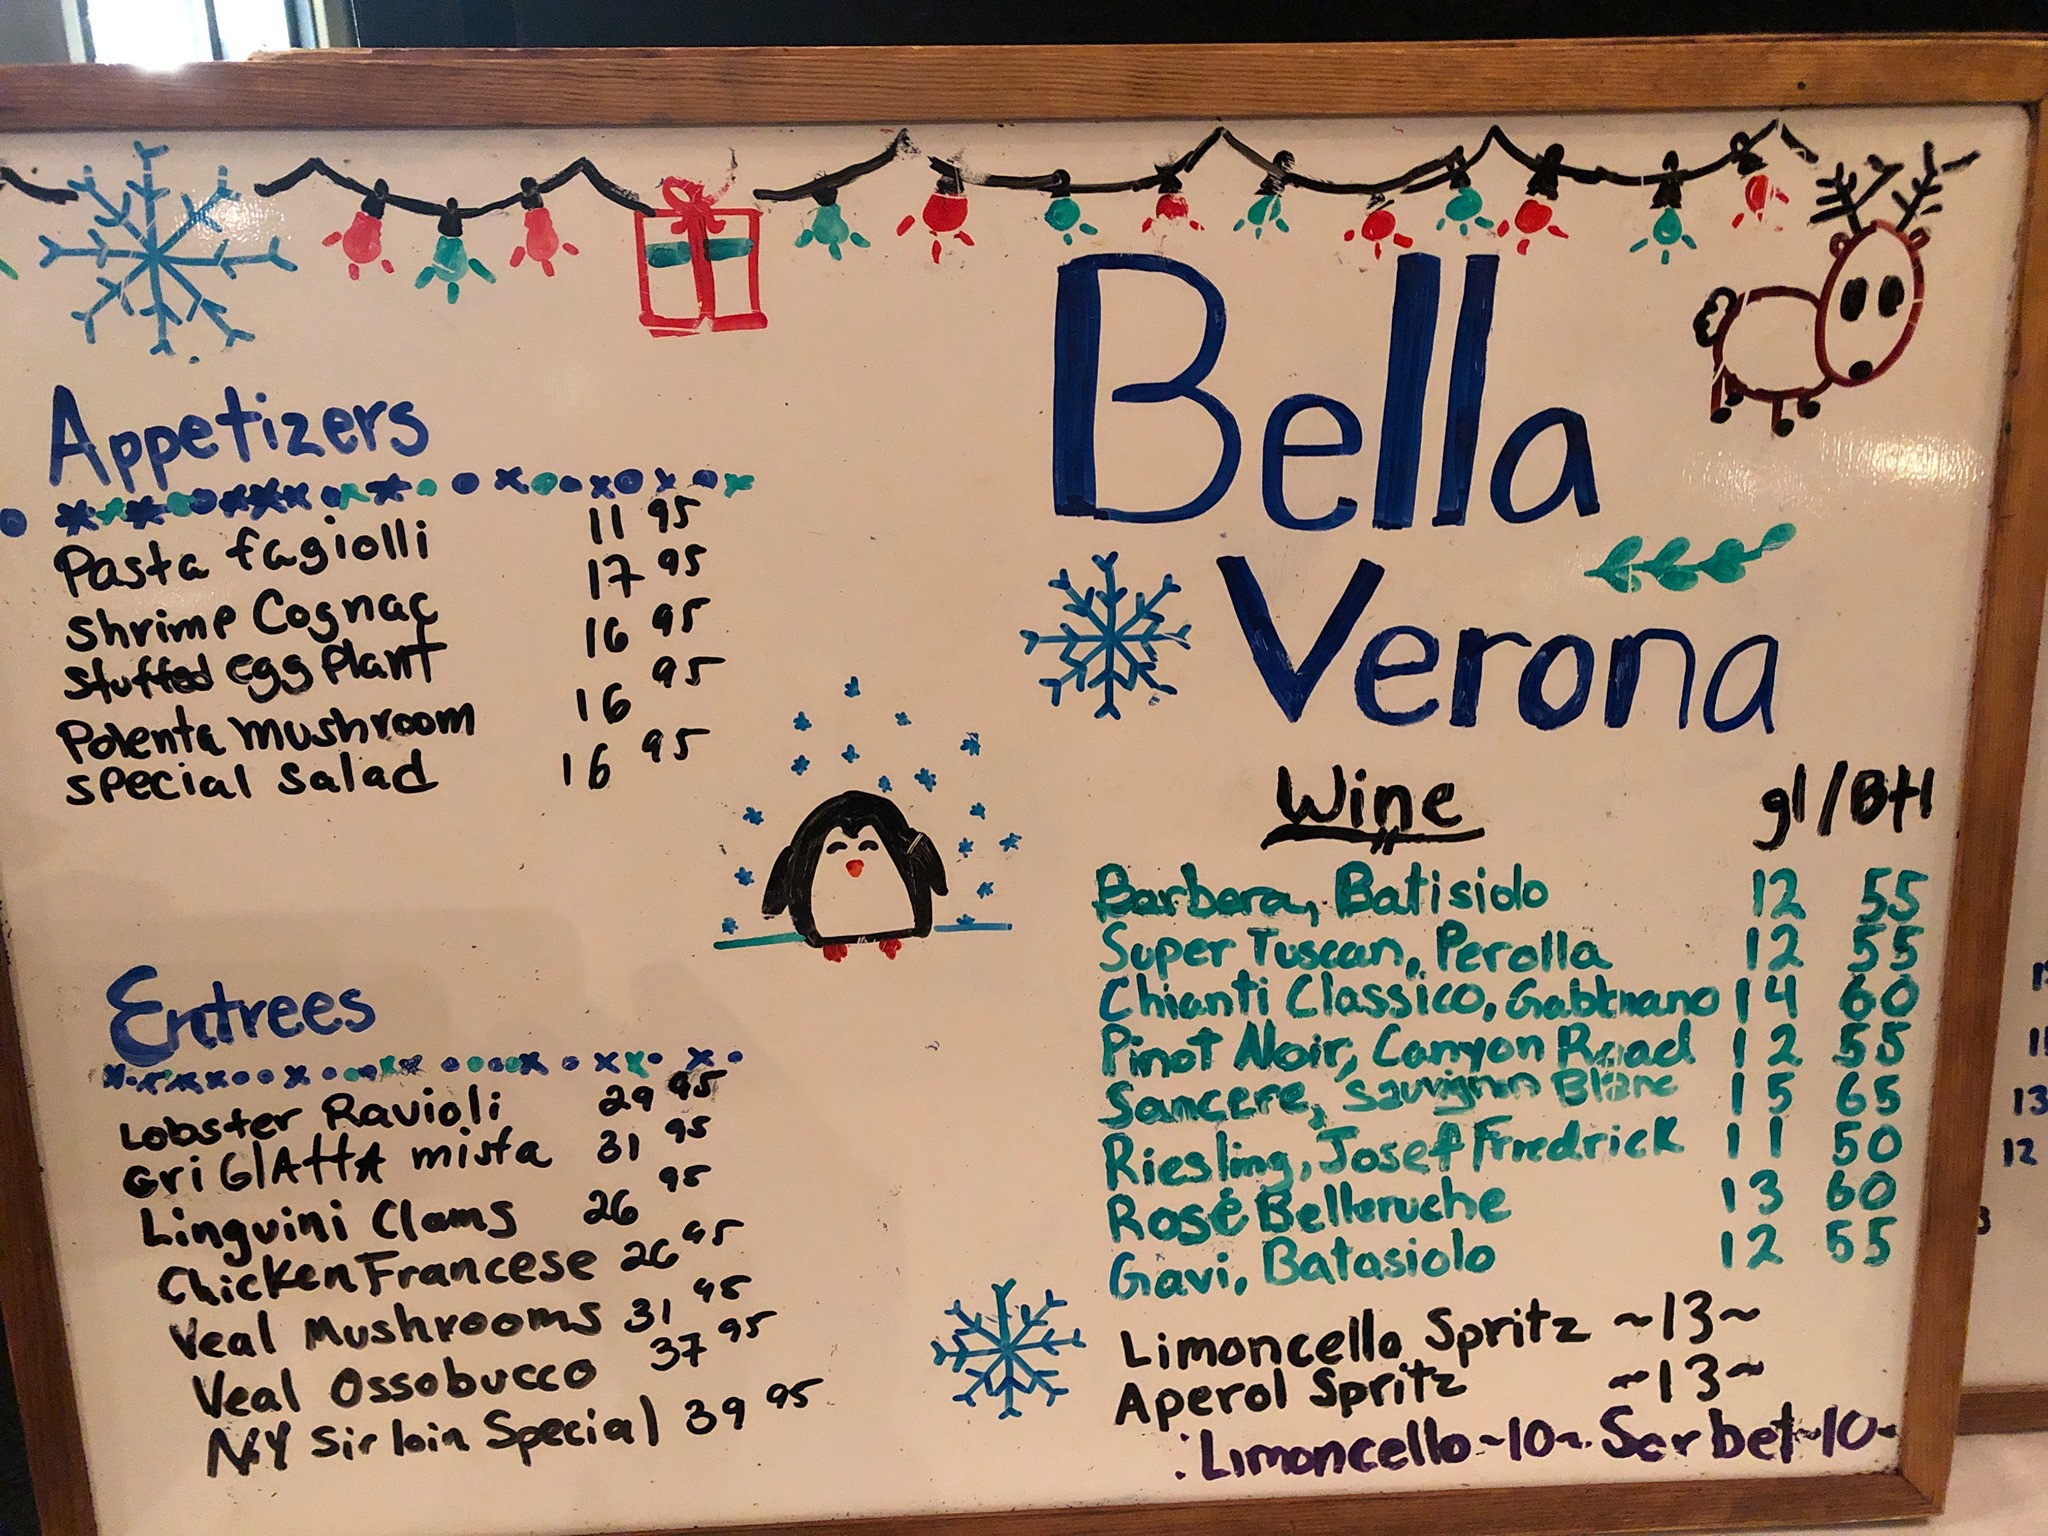 Bella
Verona
Appetizers
Pasta fagiolli 11 95
Shrimp Cognac 17 95
Stuffed egg plant 16 95
Polenta mushroom 16 95
special salad 16 95
Entrees
Lobster Ravioli 29 95
Gri GlAttA mista 31 95
Linguini Clams 26 95
Chicken Francese 26 95
Veal Mushrooms 31 95
Veal Ossobucco 37 95
NY Sirloin Special 39 95
Wine gl/Btl
Barbera, Batisiolo 12 55
Super Tuscan, Perolla 12 55
Chianti Classico, 14 60
Pinot Noir, Canyon Road 12 55
Sancere, Sauvignon Blanc 15 65
Riesling, Josef Friedrick 11 50
Rosé Belleruche 13 60
Gavi, Batasiolo 12 55
Limoncello Spritz ~13~
Aperol Spritz ~13~
Limoncello ~10~ Sorbet ~10~
13
12